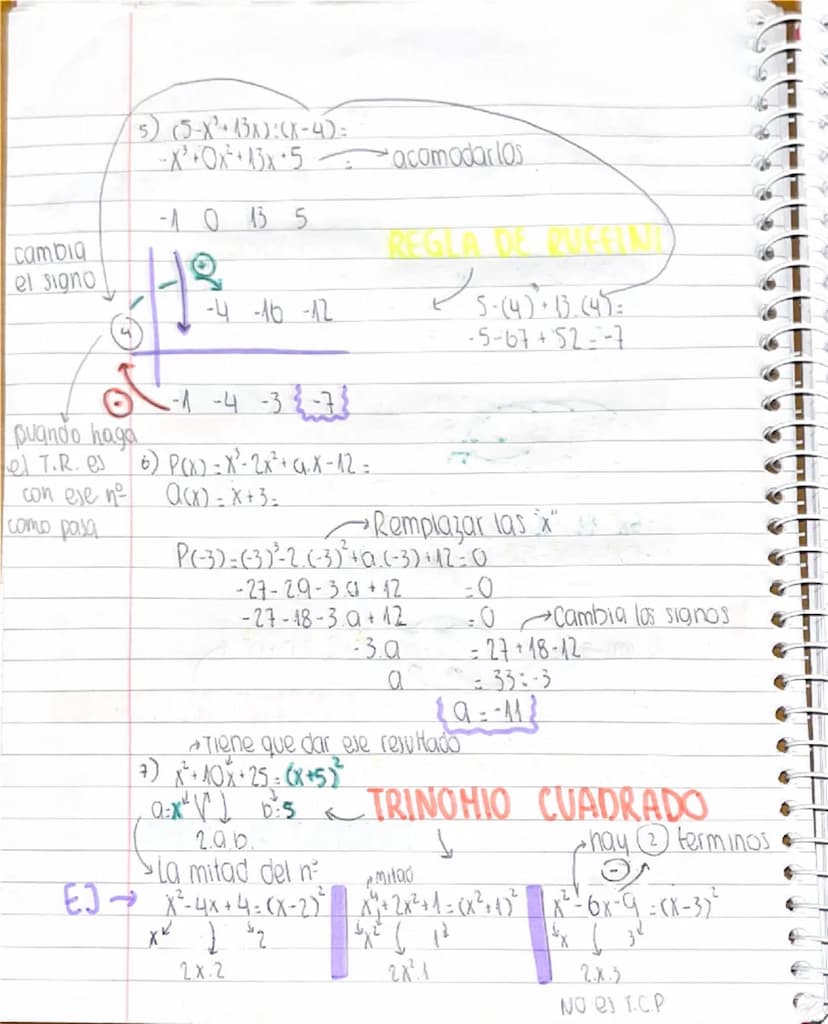 5) (5-x³+13x):(x-4)=
-x³+0x²+13x+5 = → acomodarlos
-1 0 13 5
REGLA DE RUFFINI
cambia
el signo
+
-4 -16 -12
4
5-(4)³+13.(4)=
-5-67+52=-7
-1 -4 -3 {-7}
cuando haga
el T.R. es
con ese nº
como pasa
6) P(x)=x³-2x²+a.x-12=
a(x)=x+3=
→ Remplazar las "x"
P(-3)=(-3)³-2.(-3)²+a.(-3)+12=0
-27-2.9-3.a+12 =0
-27-18-3.a+12 =0 → Cambia los signos
-3.a = 27+18-12
a = 33:-3
{a=-11}
→ Tiene que dar ese resultado
7) x²+10x+25=(x+5)²
a=x b=5 ← TRINOMIO CUADRADO
2.a.b.
→ hay 2 terminos
La mitad del nº
mitad
-
EJ → x²-4x+4=(x-2)²
x 2
2.x.2
x⁴+2x²+1=(x²+1)²
x² 1
2x².1
x²-6x-9=(x-3)²
x 3
2.x.3
NO es T.C.P